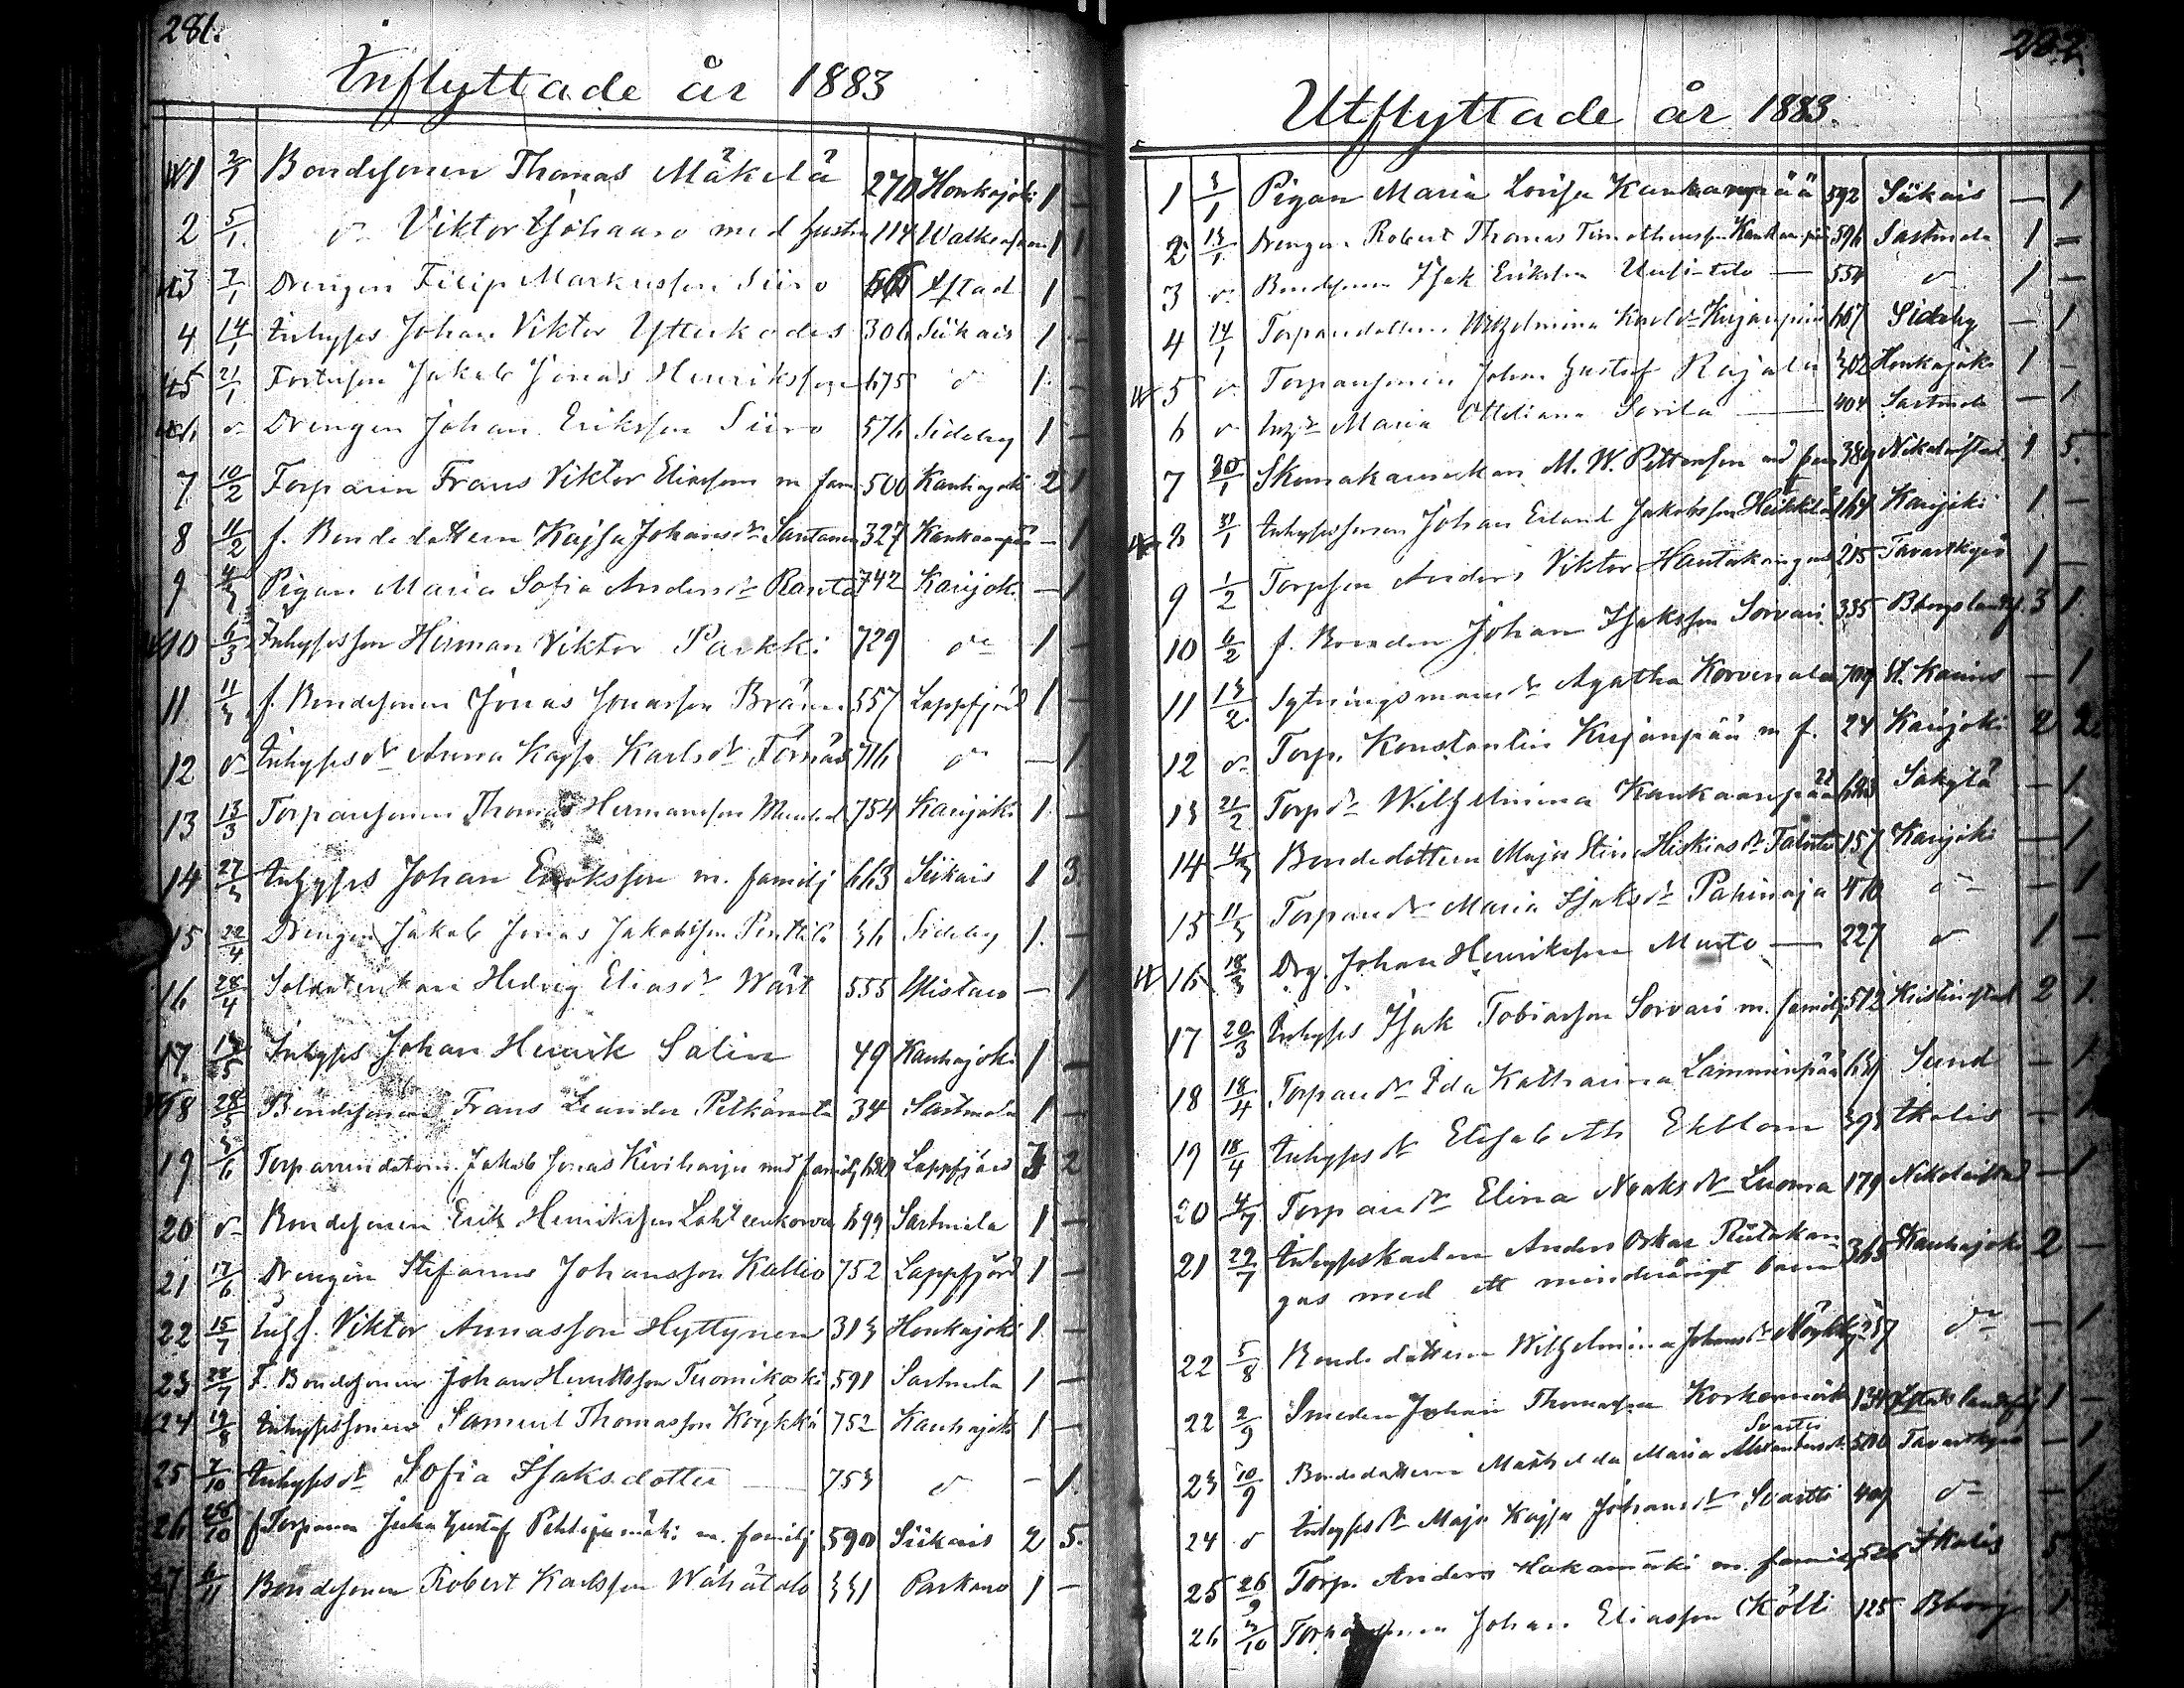 281.
Inflyttade år 1883
1 2/1 Bondesonen Thomas Mäkelä 270 Honkajoki 1 –
2 5/1 do Viktor Yjöhaaro med hustru 114 1 1
3 7/1 Drengen Filip Markusson Siiro Ystad 1 –
4 14/1 Inhyses Johan Viktor Ytterkodas 306 Siikais 1 –
5 21/1 Jakob Jonas Henriksson 675 do 1 –
6 do Drengen Johan Eriksson Siiro 576 Sideby 1 –
7 10/2 Torparen Frans Viktor Eliasson m fam 500 Kauhajoki 2 1
8 11/2 f. Bondedottern Kajsa Johansdr Santanen 327 Kankaanpää – 1
9 4/3 Pigan Maria Sofia Andersdr Ranta 742 Karijoki – 1
10 6/3 Inhysesson Herman Viktor Parkki 729 do 1 –
11 11/3 f. Bondesonen Jonas Jonasson Bränn 557 Lappfjärd 1 –
12 do Inhysesdr Anna Kajsa Karlsdr Törnäs 716 do – 1
13 13/3 Torparsonen Thomas Hermansson 754 Karijoki 1 –
14 27/3 Inhyses Johan Eriksson m. familj 663 Siikais 1 3
15 22/4 Drengen Jakob Jonas Jakobsson Penttilä 36 Sideby 1 –
16 28/4 Soldatenkan Hedvig Eliasdr Wärt 555 Ylistaro – 1
17 Inhyses Johan Henrik Salin 49 Kauhajoki 1 –
18 28/5 Bondesonen Frans Leander Pitkäranta 34 Sastmola 1 –
19 3/6 Jakob Jonas Kiviharju med familj Lappfjärd 2
20 do Bondesonen Erik Henriksson Lähteenkorva 699 Sastmola 1 –
21 17/6 Drengen Stefanus Johansson Kallio 752 Lappfjärd 1 –
22 15/7 Inh f. Viktor Annasson Hyttynen 313 Honkajoki 1 –
23 28/7 F. Bondesonen Johan Henriksson Tuomikoski 591 Sastmola 1 –
24 19/8 Inhysessonen Samuel Thomasson Köykkä 752 Kauhajoki 1 –
25 7/10 Inhysesdr Sofia Isaksdotter 753 do – 1
26 28/10 f. Torparen Juha Gustaf Pehkijamäki m. familj 590 Siikais 2 5
6/11 Bondesonen Robert Karlsson Wähätalo 331 Parkano 1 –
282.
Utflyttade år 1883.
1 3/1 Pigan Maria Lovisa Kankaanpää 592 Siikais – 1
2 13/1 Drengen Robert Thomas Timotheusson Kankaanpää 596 Sastmola 1 –
3 do Bondesonen Isak Eriksson Uusi-talo 554 do 1 –
4 14/1 Torparedottern Wilhelmina Karlsdr Kujanpää 667 Sideby – 1
5 do Torparsonen Johan Gustaf Rajala 302 Honkajoki 1 –
6 do Inhdr Maria Ottiliana Sorila 404 Sastmola – 1
7 30/1 Skomakareenkan M. W. Pettersson med barn 389 Nikolaistad 1 5.
8 31/1 Inhysessonen Johan Erland Jakobsson Heikkilä 164 Karijoki 1 –
9 1/2 Torpson Anders Viktor Hautakangas 215 Tavastkyrö 1 –
10 6/2 f. Bonden Johan Isaksson Sorvari 335 Bborgs landsf. 3 1
11 13/2 Sytningsmansdr Agatha Korvenala 709 – 1
12 do Torp. Konstantin Kujanpää m f. 24 Karijoki 2 2
13 21/2 Torpdr Wilhelmina Kankaanpää 683 Säkylä – 1
14 4/3 Bondedottern Maja Stina Hiskiasdr 157 Karijoki – 1
15 11/3 Torparedr Maria Isaksdr Pahinaja 470 do – 1
16 18/3 Drg. Johan Henriksson Musto 227 do 1 –
17 20/3 Inhyses Isak Tobiasson Sorvari m. familj 512 Kristinestad 2 1
18 18/4 Torparedr Ida Katharina Lamminpää Sund – 1
19 18/4 Inhysesdr Elisabeth Ekblom 393 Ikalis – 1
20 4/7 Torparedr Elina Noaksdr Luoma 179 Nikolaistad – 1
21 29/7 Inhyseskarlen Anders Oskar Riitakan-
gas med ett minderårigt barn 365 Kauhajoki 2 –
22 5/8 Bondedottern Wilhelmina Johansdr do – 1
22 2/9 Smeden Johan Thomasson Korkeamäki 134 1 –
23 10/9 Bondedottern Mathilda Maria Alexandersdr Svartti 500 Tavastkyrö – 1
24 do Inhysesdr Maja Kajsa Johansdr Svartti 409 do – 1
25 26/9 Torp. Anders Hakamäki m. familj 526 Ikalis 5
26 3/10 Torparsonen Johan Eliasson Költi 125 Bborg 1